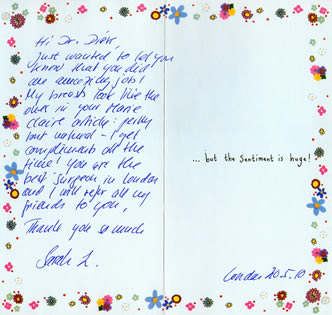 Hi Dr. Dirk,
just wanted to let you
know that you did
an amazing job!
My breasts look like the
ones in your Marie
Claire article: perky
but natural - I get
compliments all the
time! You are the
best surgeon in London
and I will refer all my
friends to you,
Thank you so much
Sarah L.
... but the sentiment is huge!
London 20.5.10